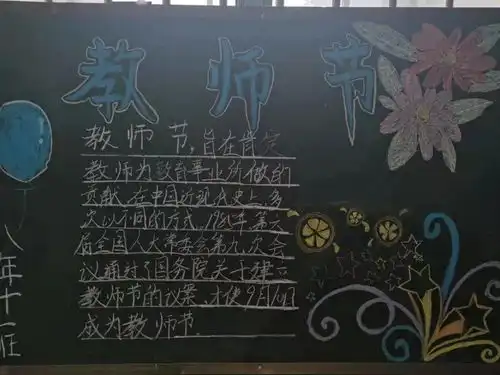 教师节
教师节,旨在肯定
教师为教育事业所做的
贡献。在中国近现代史上,多
次以不同的方式,1985年第六
届全国人大常委会第九次会
议通过了国务院关于建立
教师节的议案,才使9月10日
成为教师节.
八年十一班